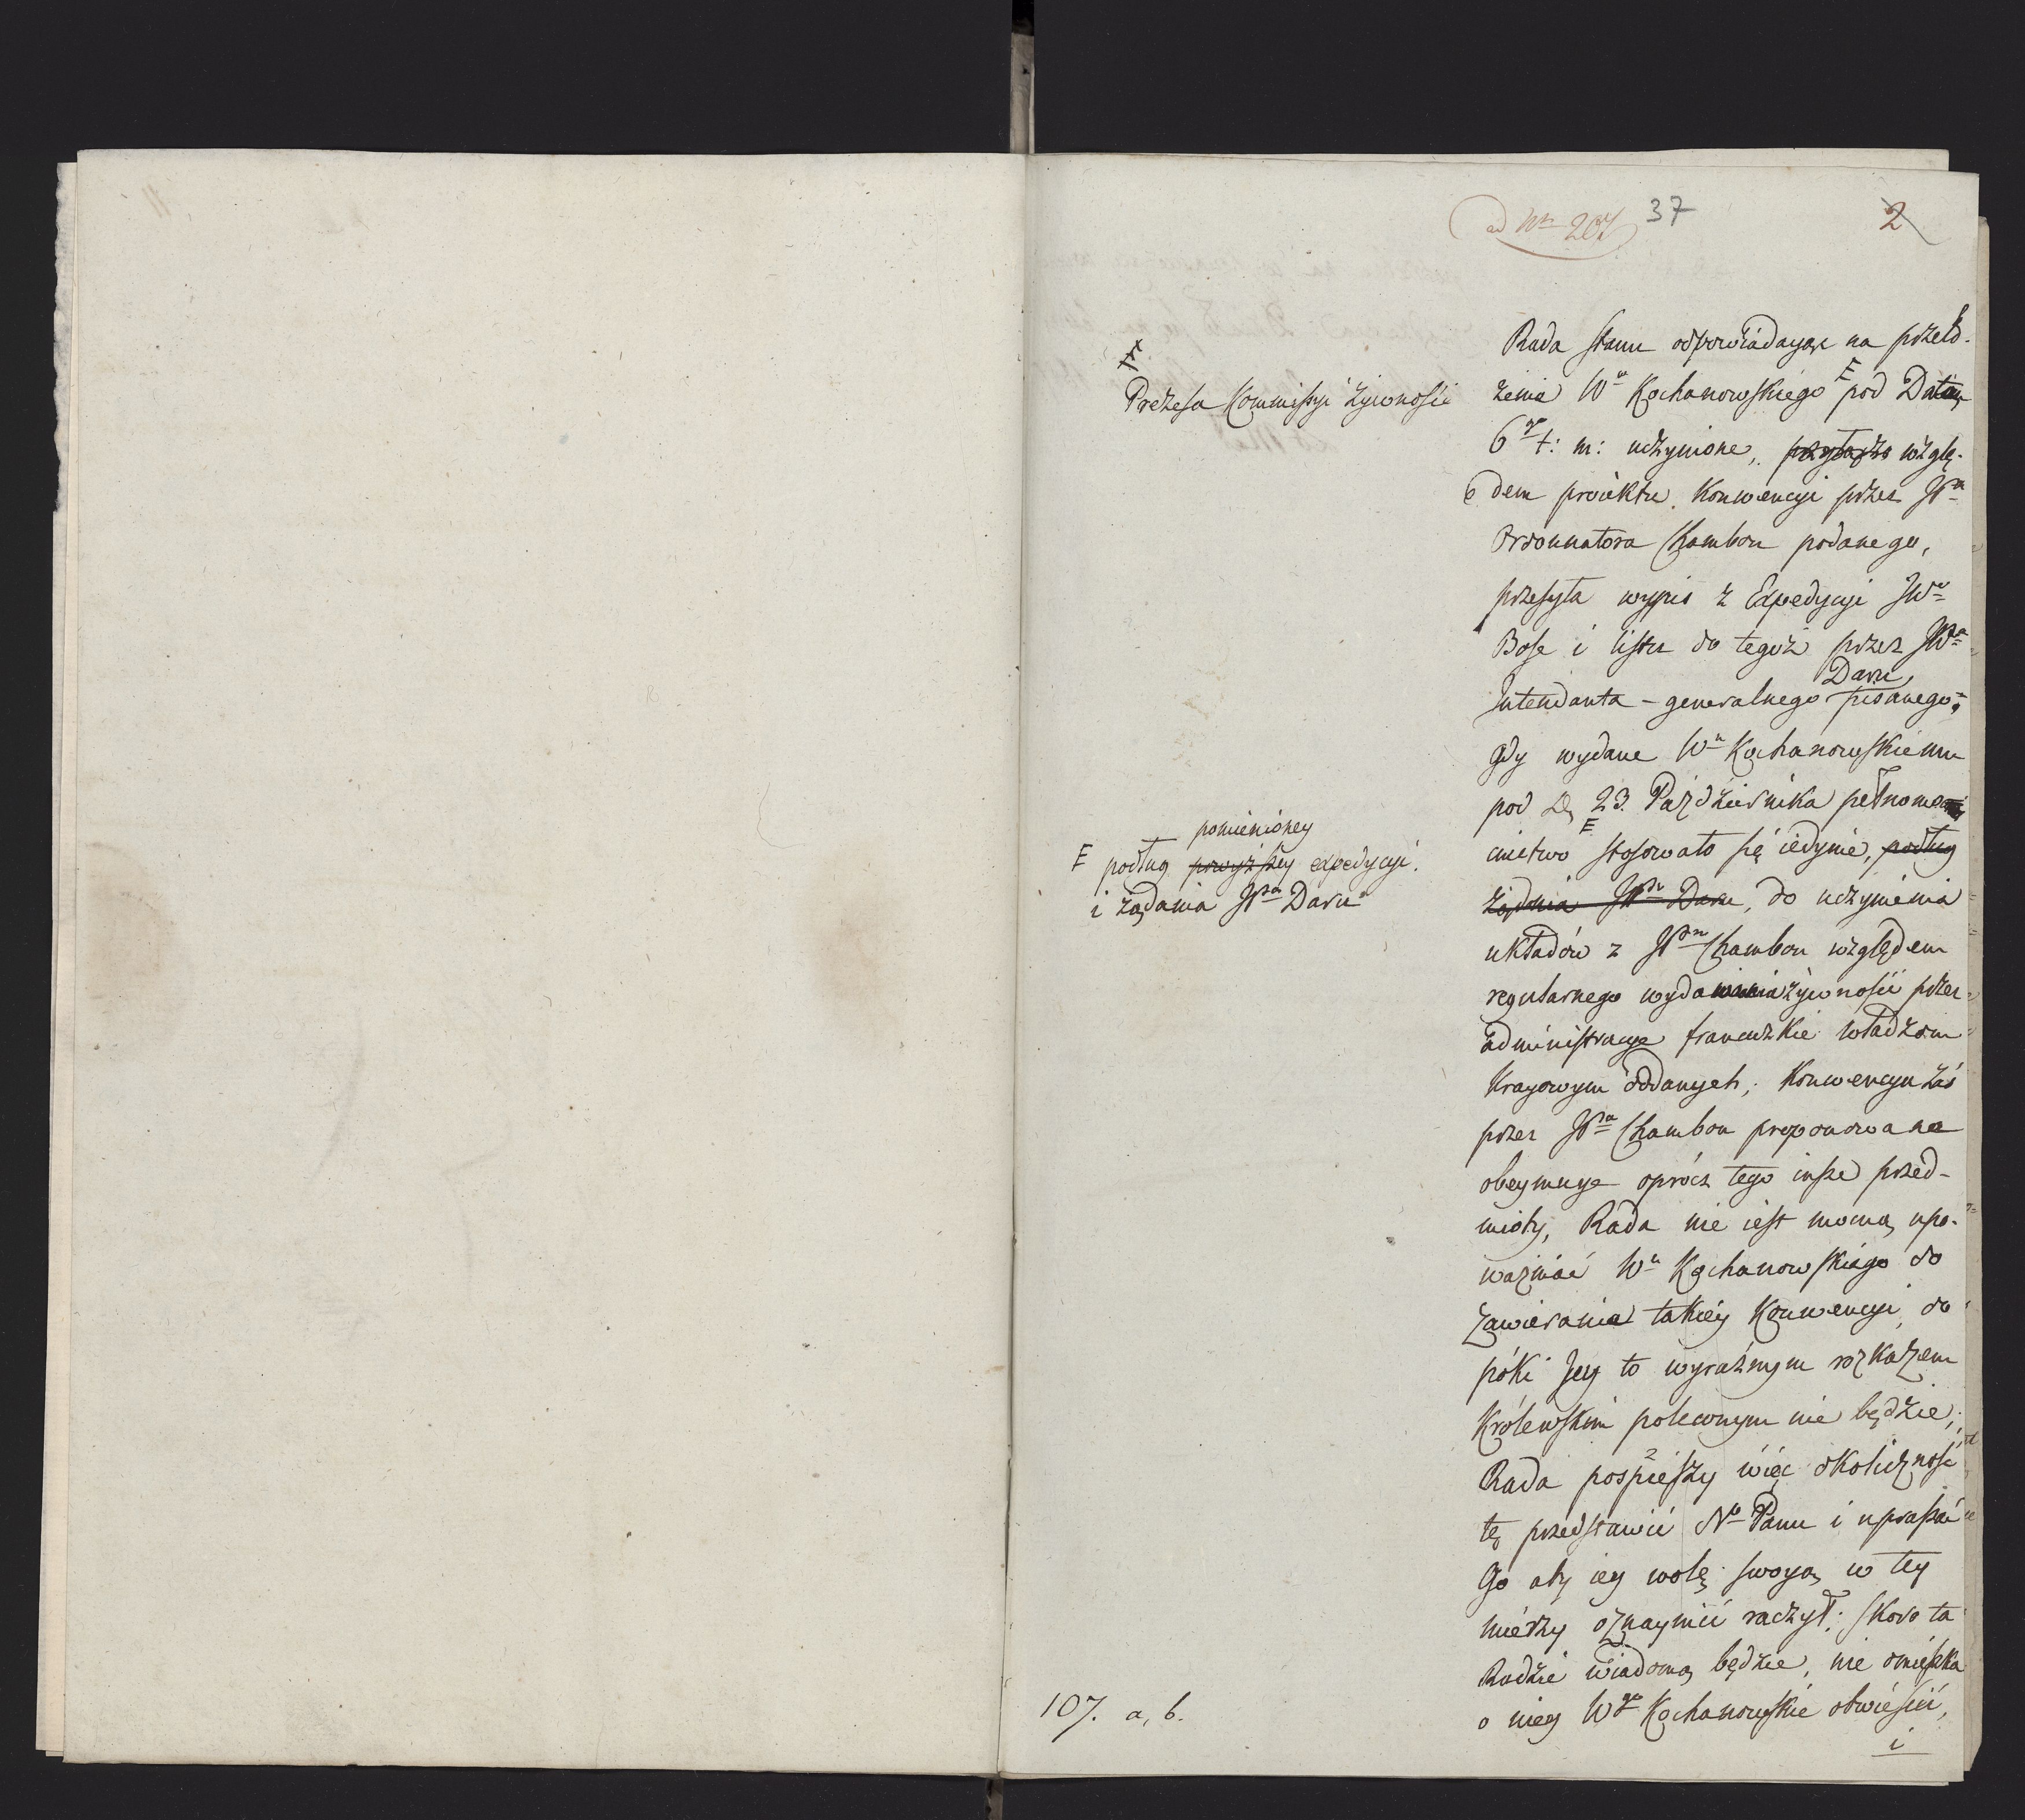 ad Nr 207
37
2
Rada Stanu odpowiadaiąc na przeło-
żenie Wo Kochanowskiego F pod Datą
6go t: m: uczynione, wzglę-
dem proiektu Konwencyi przez JPa
Ordonnatora Chambon podanego,
przesyła wypis z Expedycyi JWo
Bose i listu do tegoż przez JPa
Intendanta-generalnego Daru pisanego;
gdy wydane Wu Kochanowskiemu
pod D. 23. Października pełnomo-
cnictwo F stosowało się iedynie, podług
żądania JPa Daru, do uczynienia
układów z JPem Chambon względem
regularnego wydawania żywności przez
administracye francuzkie władzom
Kraiowym oddanych; Konwencya zaś
przez JPa Chambon proponowana
obeymuye oprócz tego insze przed-
mioty, Rada nie iest mocną upo-
ważniać Wo Kochanowskiego do
zawierania takiey Konwencyi, do
póki Jey to wyraźnym rozkazem
Królewskim poleconym nie będzie;
Rada pospieszy więc okoliczność
tę przedstawić No Panu i upraszać
Go aby iey wolę swoyą w tey
mierzy oznaymić raczył; skoro ta
Radzie wiadomą będzie, nie omieszka
o niey Wgo Kochanowskie obwieścić,
i
F
Prezesa Kommissyi żywności
F podług powyższey pomienioney expedycyi
i żądania JPa Daru
107. a, b.